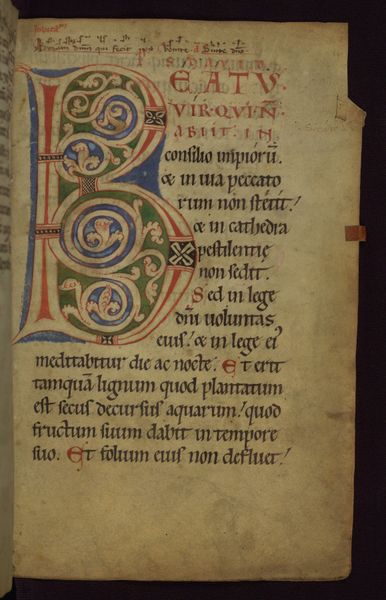 EATV·
VIR·QVI N̄
ABIIT · IN
consilio impiorū.
& in uia peccato
rum non stetit!
& in cathedra
pestilentię
non sedit.
Sed in lege
dn̄i uoluntas
eius! & in lege ei᾽
meditabitur die ac nocte. Et erit
tamquā lignum quod plantatum
est secus decursus aquarum! quod
fructum suum dabit in tempore
suo. Et folium eius non defluet!